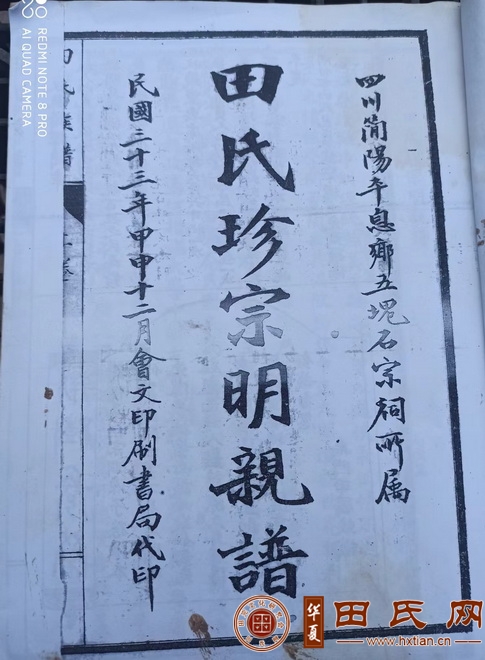 四川簡陽平息鄉五塊石宗祠所属
田氏珍宗明親譜
民國三十三年甲申十二月會文印刷書局代印
田氏族譜
REDMI NOTE 8 PRO
AI QUAD CAMERA
华夏
田氏网
www.hxtian.cn